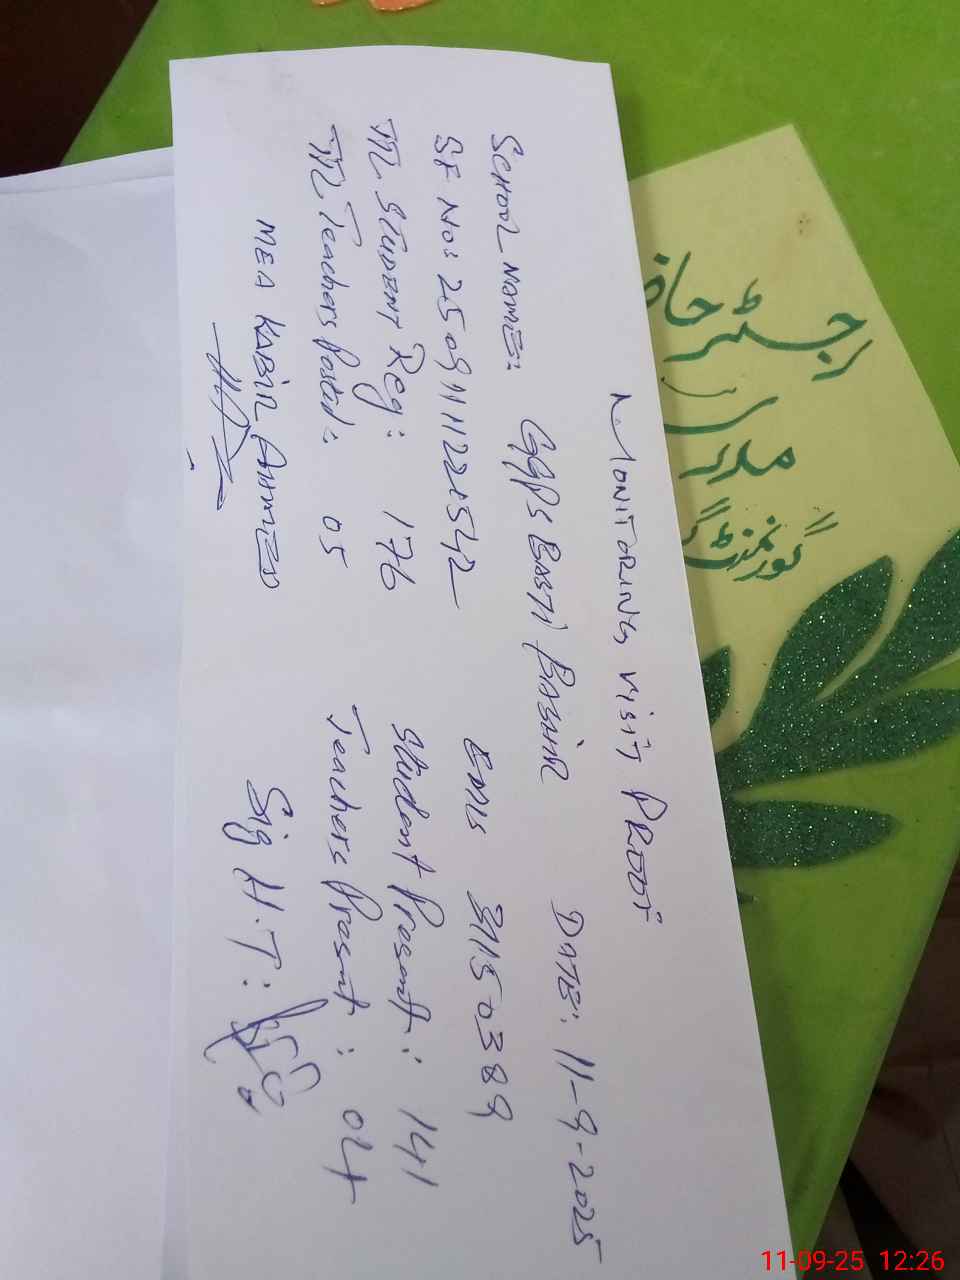 MONITORING VISIT PROOF
SCHOOL NAME: GGPS BASTI BASHIR DATE: 11-9-2025
SF No: 25091112242 EMIS 31150389
Ttl STUDENT Reg: 176 Student Present: 141
Ttl Teachers Posted: 05 Teachers Present: 04
MEA KABIR AHMED Sig H.T:
رجسٹر حاضری
مدرسہ
گورنمنٹ گر
11-09-25 12:26